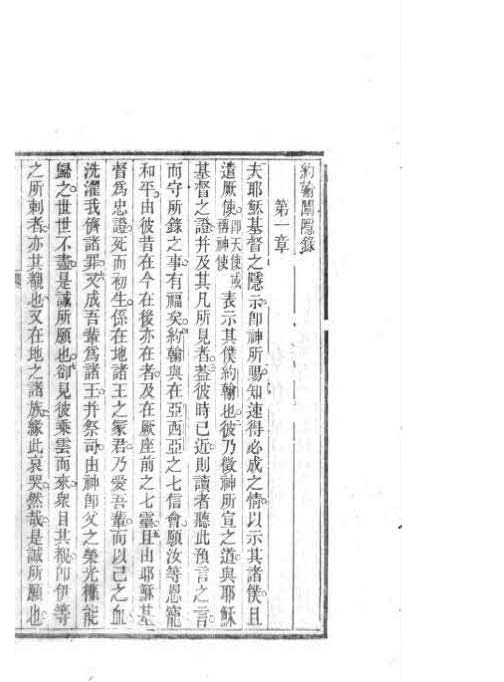 約翰隱錄
第一章
夫耶穌基督之隱示卽神所賜知速得必成之情。以示其諸僕。且
遣厥使卽天使或稱神使表示其僕約翰也。彼乃徵神所宣之道。與耶穌
基督之證。幷及其凡所見者。葢彼時已近。則讀者聽此預言之言。
而守所錄之事。有福矣。約翰與在亞西亞之七信會。願汝等恩寵
和平。由彼昔在今在後亦在者。及在厥座前之七靈。且由耶穌基
督爲忠證。死而初生。係在地諸王之冢君。乃愛吾輩。而以己之血
洗濯我儕諸罪。又成吾輩爲諸王。幷祭司。由神卽父之榮光權能
歸之。世世不盡。是誠所願也。卻見彼乘雲而來。衆目其覩。卽伊等
之所刺者。亦其覩也。又在地之諸族。緣此哀哭。然哉。是誠所願也。